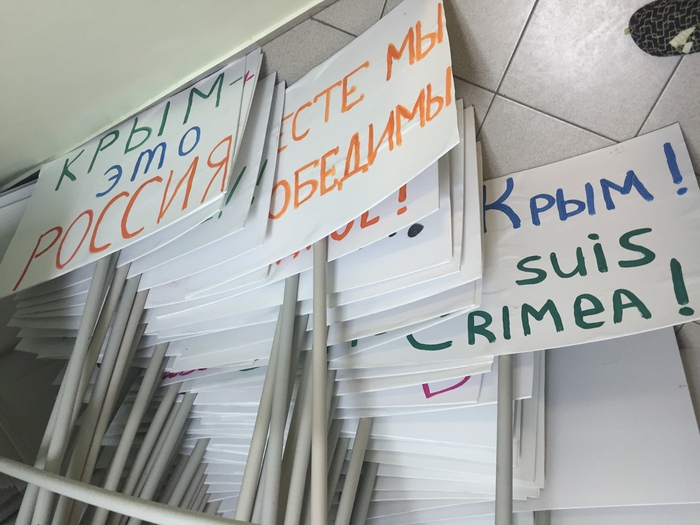 КРЫМ-
ЭТО
РОССИЯ
ЕСТЕ МЫ
ОБЕДИМЫ
Крым!
suis
CRIMEA!